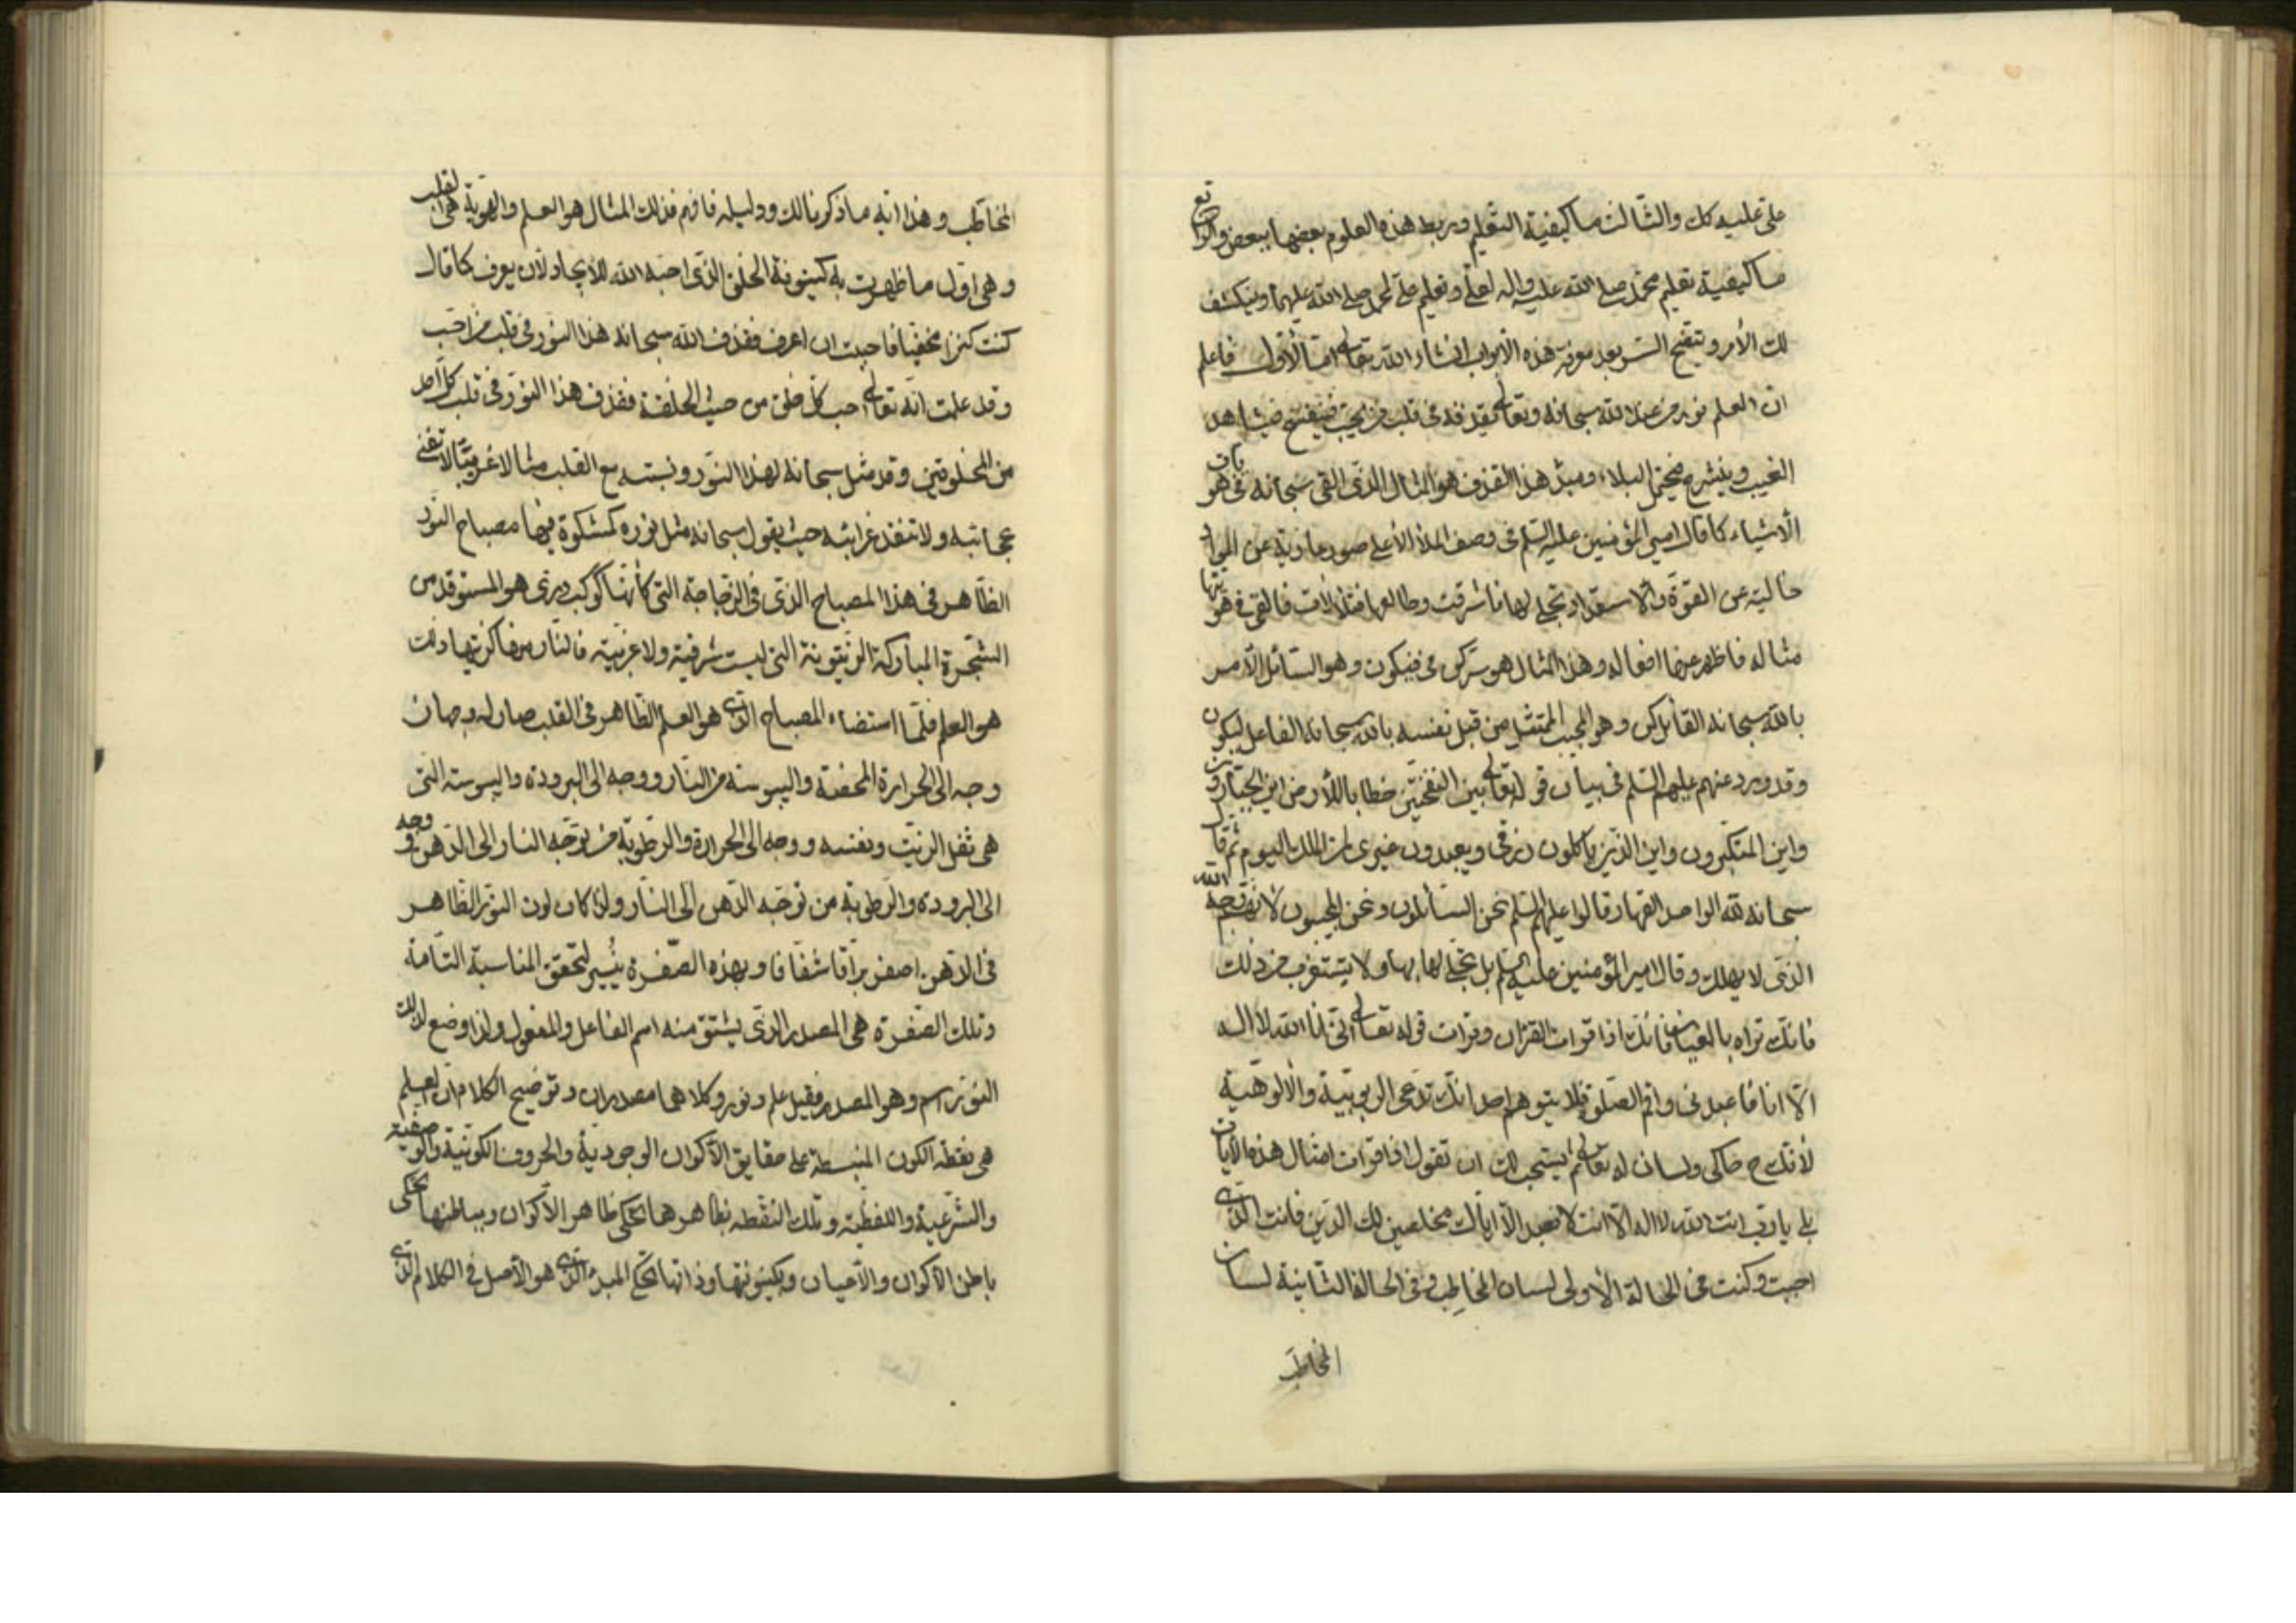 علي عليه كك والثالث ما كيفية التعليم وربط هذه العلوم بعضها ببعض والرابع
ما كيفية تعليم محمد صلى الله عليه واله لعلي وتعليم علي لمحمد صلى الله عليهما وينكشف
لك الأمر وتنفتح السر بعد معرفة هذه الأبواب انشاء الله تعالى اما الأول فاعلم
ان العلم نور من عند الله سبحانه وتعالى يقذفه في قلب من يحب فينفتح فيشاهد
الغيب وينشرح فيحتمل البلاء ومبدء هذا القذف هو المثال الذي القى سبحانه في هويات
الأشياء كما قال امير المؤمنين عليه السلم في وصف الملأ الأعلى صور عارية عن المواد
خالية عن القوة والاستعداد تجلى لها فاشرقت وطالعها فتلألأت فالقى في هويتها
مثاله فاظهر عنها افعاله وهذا المثال هو سر كن في فيكون وهو السائل الآمر
بالله سبحانه القائل كن وهو المجيب الممتثل من قبل نفسه بالله سبحانه الفاعل ليكون
وقد ورد عنهم عليهم السلم في بيان قوله تعالى بين النفختين خطابا للأرض اين الجبارون
واين المتكبرون واين الذين ياكلون رزقي ويعبدون غيري لمن الملك اليوم ثم قال
سبحانه لله الواحد القهار قالوا عليهم السلم نحن السائلون ونحن المجيبون لأنهم وجه الله
الذي لا يهلك وقال امير المؤمنين عليه السلم بل تجلى لها بها ولا يستغرب من ذلك
فانك تراه بالعيان فانك اذا قرات القران وقرات قوله تعالى انني انا الله لا اله
الا انا فاعبدني واقم الصلوة فلا يتوهم احد انك تدعي الربوبية والألوهية
لأنك ح حاكي ولسان له تعالى ثم يستحب لك ان تقول اذا قرات امثال هذه الآيات
بلى يا رب انت الله لا اله الا انت لا نعبد الا اياك مخلصين لك الدين فانت الذي
اجبت وكنت في الحالة الأولى لسان المخاطِب وفي الحالة الثانية لسان
المخاطَب
المخاطَب وهذا اية ما ذكرنا لك ودليله فافهم فذلك المثال هو العلم والهوية هي القلب
وهي اول ما ظهرت به كينونة الخلق الذي احبه الله للايجاد لأن يعرف كما قال
كنت كنزا مخفيا فاحببت ان اعرف فقذف الله سبحانه هذا النور في قلب من احب
وقد علمت انه تعالى احب كل خلق من حيث الخلقة فقذف هذا النور في قلب كل احد
من المخلوقين وقد مثل سبحانه لهذا النور ونسبته مع القلب مثالا غريبا لا تفنى
عجائبه ولا تنفد غرائبه حيث يقول سبحانه مثل نوره كمشكوة فيها مصباح النور
الظاهر في هذا المصباح الذي في الزجاجة التي كأنها كوكب دري هو المستوقد من
الشجرة المباركة الزيتونة التي ليست شرقية ولا غربية فالنار من ذلك
هو العلم فلما استضاء المصباح الذي هو العلم الظاهر في القلب صار له وجهان
وجه الى الحرارة المحضة واليبوسة من النار ووجه الى البرودة واليبوسة التي
هي ثفل الزيت ونفسه ووجه الى الحرارة والرطوبة من توجه النار الى الدهن ووجه
الى البرودة والرطوبة من توجه الدهن الى النار ولذا كان لون النور الظاهر
في الدهن اصفر براقا شفافا وبهذه الصفرة ينير لتحقق المناسبة التامة
وتلك الصفرة هي المصدر الذي يشتق منه اسم الفاعل والمفعول ولذا وضع لذلك
النور اسم وهو المصدر فقيل علم ونور وكلاهما مصدران وتوضيح الكلام ان العلم
هي نقطة الكون المنبسطة على حقايق الأكوان الوجودية والحروف الكونية والوصفية
والشرعية واللفظية وتلك النقطة بظاهرها تحكي ظاهر الأكوان وبباطنها تحكي
باطن الأكوان والأعيان وبكينونتها وذاتها تحكي المبدء الذي هو الأصل في الكلام الذي